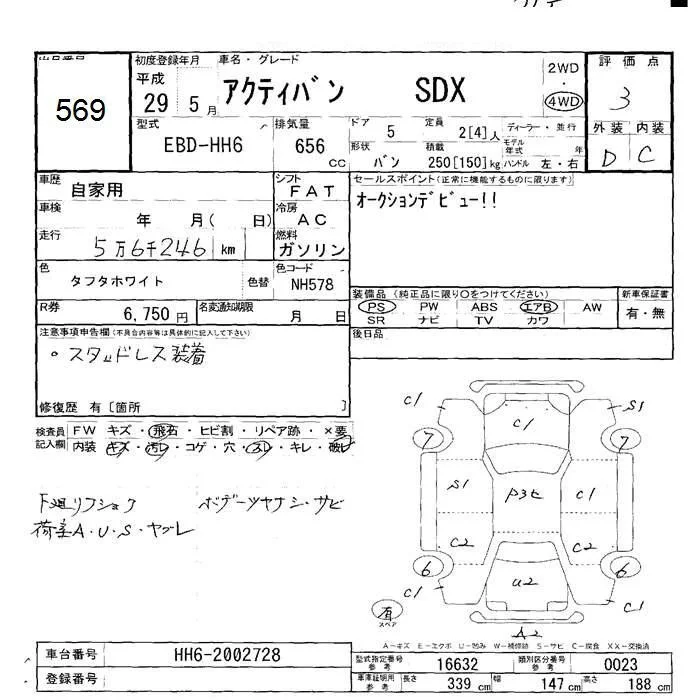 569
初度登録年月
平成
29年 5月
車名・グレード
アクティバン SDX
2WD
・
4WD
評価点
3
型式
EBD-HH6
排気量
656 CC
ドア
5
定員
2[4]人
ディーラー・並行
形状
バン
積載
250[150]kg
モデル年式 年
ハンドル 左・右
外装 内装
D C
車歴
自家用
シフト
FAT
セールスポイント(正常に機能するものに限ります)
オークションデビュー!!
車検
年 月( 日)
冷房
AC
走行
5万6千246 km
燃料
ガソリン
色
タフタホワイト
色替
色コード
NH578
装備品 (純正品に限り○をつけてください)
PS PW ABS エアB AW
SR ナビ TV カワ
新車保証書
有・無
R券
6,750円
名変通知期限
月 日
後日品
注意事項申告欄(不具合内容等は具体的に記入して下さい)
○スタッドレス装着
修復歴 有 [箇所 ]
検査員記入欄
FW キズ・飛石・ヒビ割・リペア跡・×要
内装 キズ・汚レ・コゲ・穴・スレ・キレ・破レ
下廻リフショク ボデーツヤナシ・サビ
荷室A・U・S・ヤブレ
C1
C1
S1
7
7
S1
P3セ
C1
C2
C2
6
6
U2
C1
C1
A2
有
スペア
A-キズ E-エクボ U-凹み W-補修跡 S-サビ C-腐食 XX-交換済
車台番号
HH6-2002728
登録番号
型式指定番号参考
16632
類別区分番号参考
0023
車庫証明用参考
長さ 339 cm
幅 147 cm
高さ 188 cm